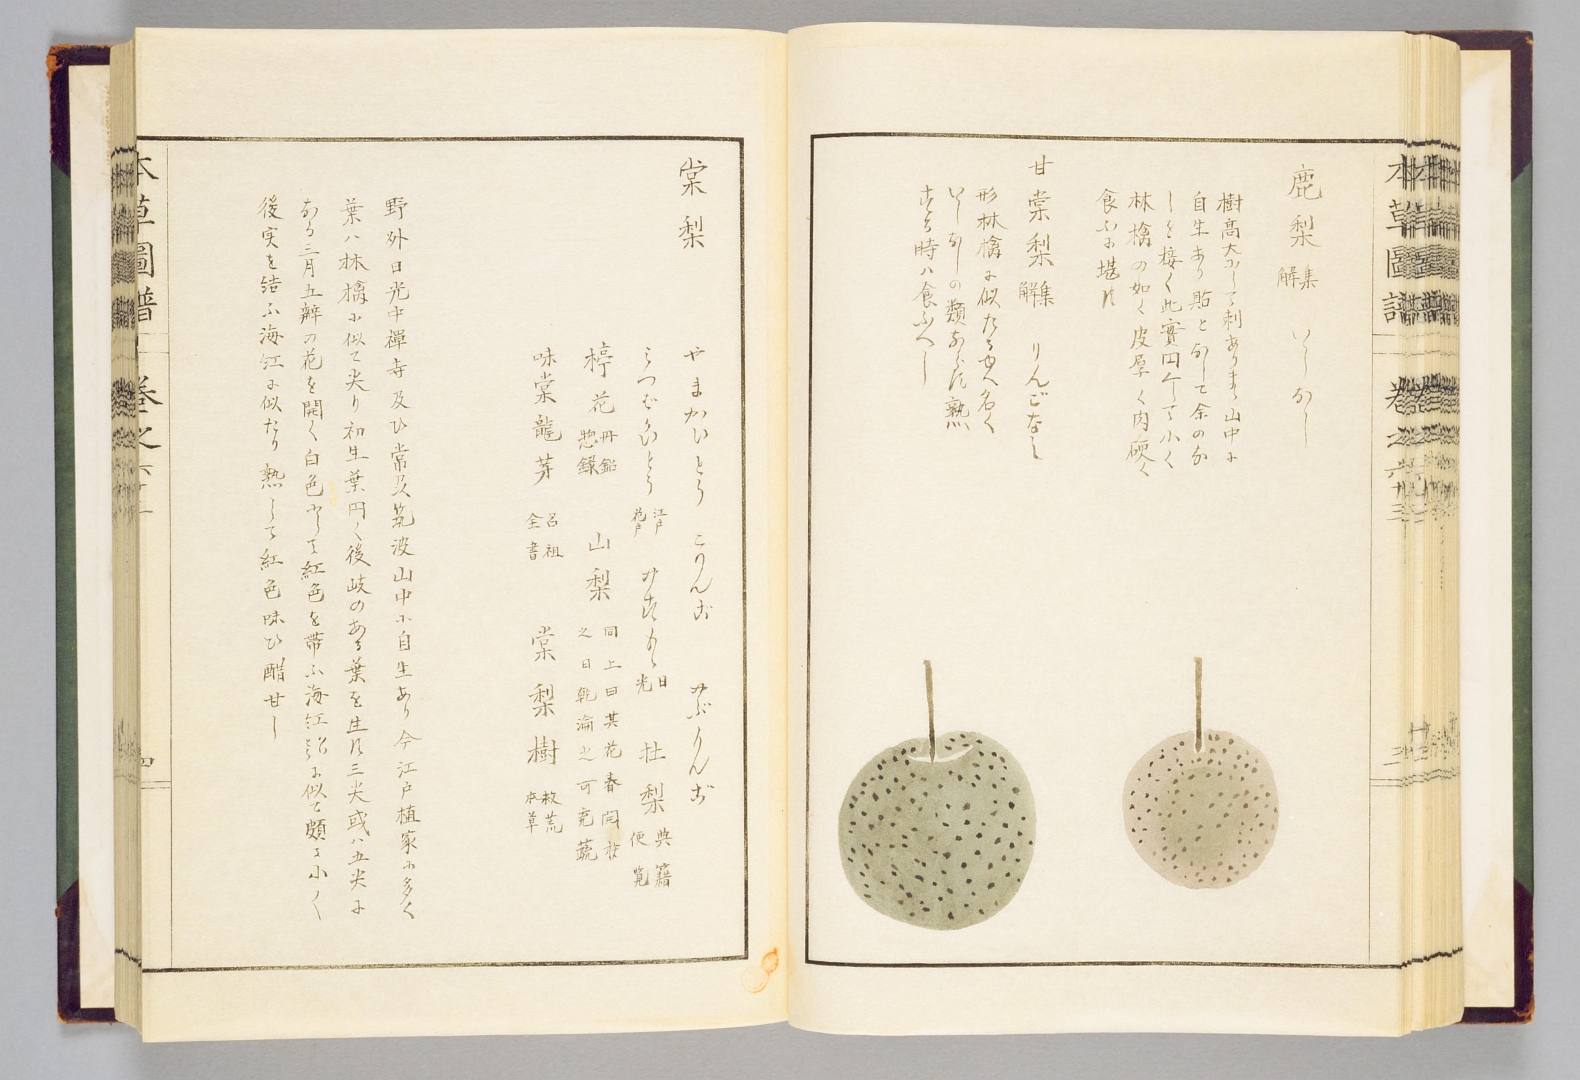 鹿梨 集解 いしなし
樹髙大にして刺あり山中に
自生あり貼となして余のな
しを接く此實円くして小く
林檎の如く皮厚く肉硬く
食ふに堪ず
甘棠梨 集解 りんごなし
形林檎に似たる故名く
いしなしの類ならず熟
する時ハ食ふべし
本草圖譜 巻之六十三
棠梨
やまかいどう こりんご みぶりんご
みつばかいどう 江戸花戸 日光 杜梨 典籍便覧
楟花 丹鉛惣録 山梨 同上曰其花春開采之日乾瀹之可充蔬
味棠龍芽 呂祖全書 棠梨樹 救荒本草
野外日光中禪寺及ひ常及筑波山中に自生あり今江戸植家に多く
葉ハ林檎に似て尖り初生葉円く後岐のある葉を生ず三尖或ハ五尖に
なる三月五辧の花を開く白色にして紅色を帯ふ海紅に似て頗る小く
後実を結ふ海紅に似たり熟して紅色味ひ醋甘し
本草圖譜 巻之六十